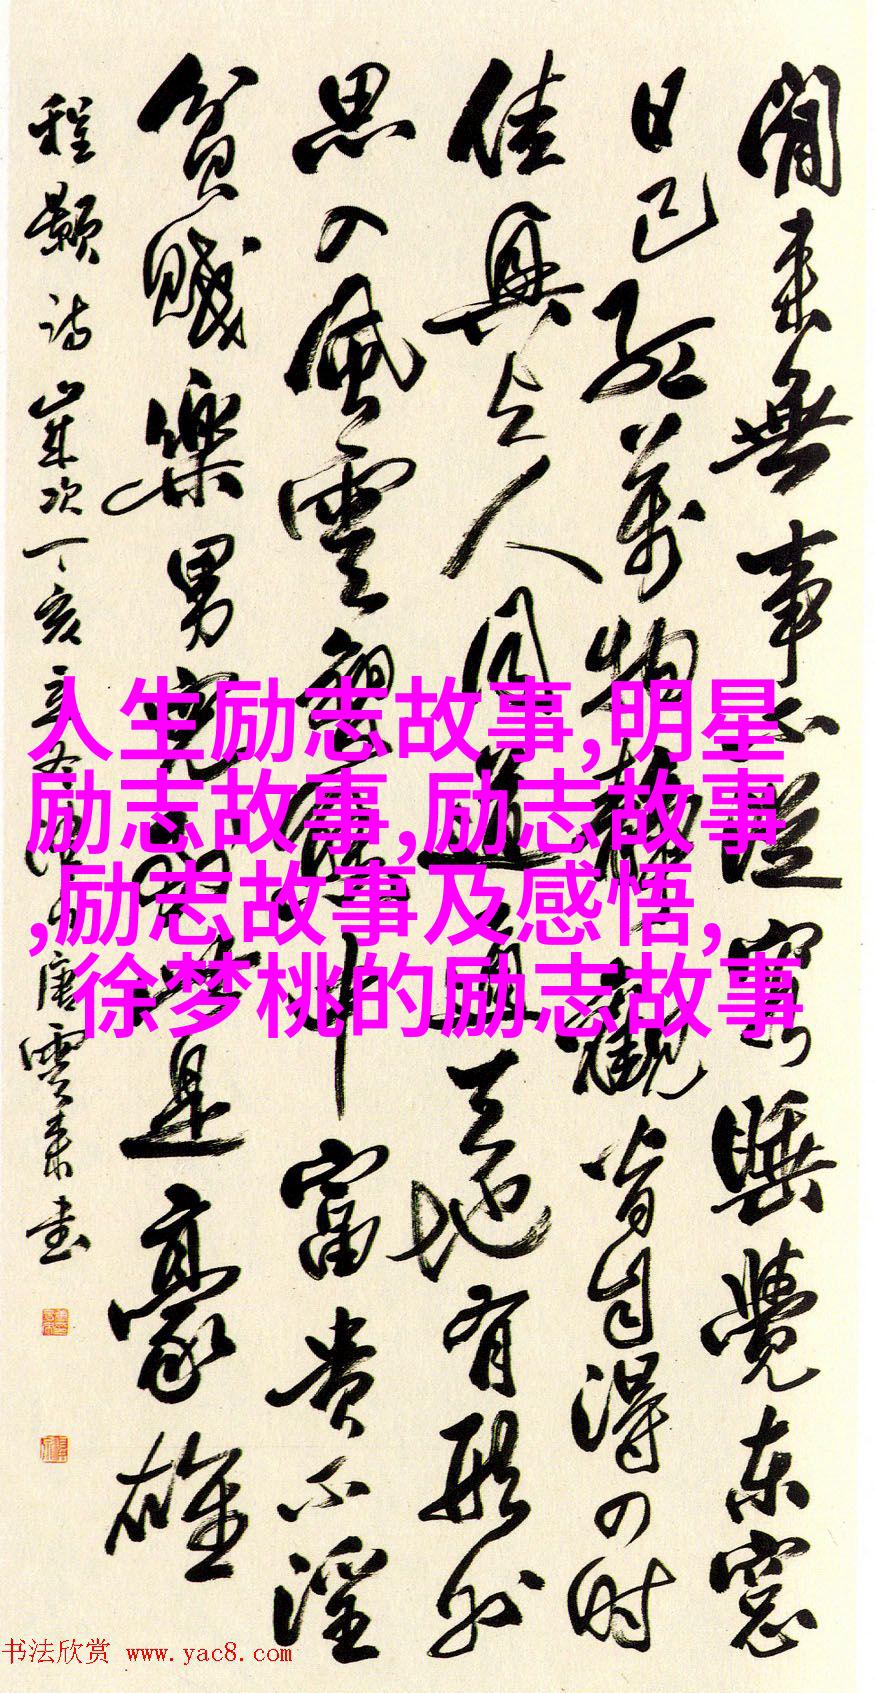 閒来無事不從容睡覺东窓
日已红萬物静觀皆自得四时
佳興与人同道通天地有形外
思入風雲變態中富贵不淫
貧賤樂男兒到此是豪雄
程颢诗歲次丁亥立冬唐雲来书
人生励志故事,明星
励志故事,励志故事
,励志故事及感悟,
徐梦桃的励志故事
书法欣赏 www.yac8.com